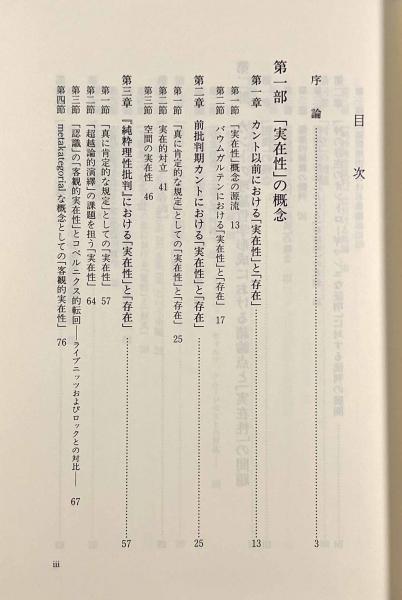 目次
序論……3
第一部 「実在性」の概念
第一章 カント以前における「実在性」と「存在」……13
第一節 「実在性」概念の源流 13
第二節 バウムガルテンにおける「実在性」と「存在」 17
第二章 前批判期カントにおける「実在性」と「存在」……25
第一節 「真に肯定的な規定」としての「実在性」と「存在」 25
第二節 実在的対立 41
第三節 空間の実在性 46
第三章 『純粋理性批判』における「実在性」と「存在」……57
第一節 「真に肯定的な規定」としての「実在性」 57
第二節 「超越論的演繹」の課題を担う「実在性」 64
第三節 「認識」の「客観的実在性」とコペルニクス的転回――ライプニッツおよびロックとの対比―― 67
第四節 metakategorial な概念としての「客観的実在性」 76
iii